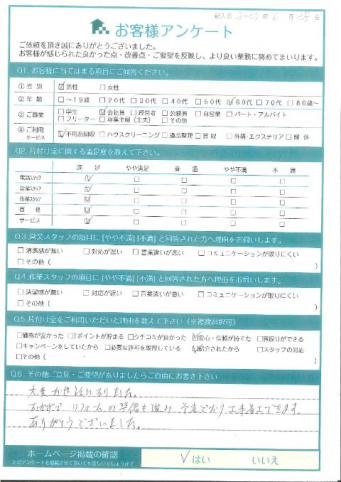 お客様アンケート
ご依頼を頂き誠にありがとうございました。
お客様が感じられた良かった点・改善点・ご要望を反映し、より良い業務に努めてまいります。
Q1. お客様に当てはまる項目にご回答ください。
① 性 別 ☑男性 □女性
② 年 齢 □～19歳 □20代 □30代 □40代 □50代 ☑60代 □70代 □80歳～
③ ご職業 □学生 ☑会社員 □経営者 □公務員 □自営業 □パート・アルバイト
□フリーター □その他
④ ご利用サービス ☑不用品回収 □ハウスクリーニング □遺品整理 □買取 □外構・エクステリア □解体
満足 やや満足 普通 やや不満 不満
電話スタッフ ☑ □ □ □ □
営業スタッフ ☑ □ □ □ □
作業スタッフ ☑ □ □ □ □
価格 ☑ □ □ □ □
サービス ☑ □ □ □ □
Q3. 営業スタッフの項目に [やや不満] [不満] と回答された方へ理由をお伺いします。
□清潔感が無い □対応が遅い □言葉遣いが悪い □コミュニケーションが取りにくい
□その他 ( )
Q4. 作業スタッフの項目に [やや不満] [不満] と回答された方へ理由をお伺いします。
□清潔感が無い □対応が遅い □言葉遣いが悪い □コミュニケーションが取りにくい
□その他 (
Q5. 片付け堂をご利用いただいた理由を教えて下さい (※複数選択可)
□価格が安かった □Tポイントが貯まる □クチコミが良かった ☑安心・信頼が持てた □見積りができる
□キャンペーンをしていたから □必要な許可を取得している ☑紹介されたから □スタッフの対応
□その他 (
Q6. その他、ご意見・ご要望がありましたらご自由にお書き下さい
大変お世話になりました。
おかげで リフォームの準備も進み 予定どおり工事着工できます。
ありがとうございました。
ホームページ掲載の確認
✓はい いいえ